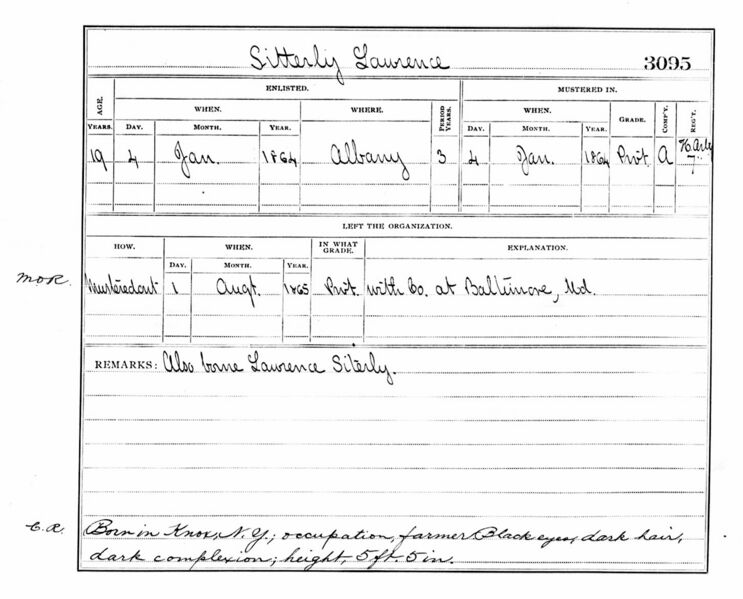 Sitterly Lawrence 3095
ENLISTED. MUSTERED IN.
AGE. WHEN. WHERE. PERIOD YEARS. WHEN. GRADE. COMP'Y. REG'T.
YEARS. DAY. MONTH. YEAR. DAY. MONTH. YEAR.
19 4 Jan. 1864 Albany 3 4 Jan. 1864 Prvt. A H Arty
7"
LEFT THE ORGANIZATION.
HOW. WHEN. IN WHAT GRADE. EXPLANATION.
DAY. MONTH. YEAR.
M.O.R. Mustered out 1 Augt. 1865 Prvt. with Co. at Baltimore, Md.
REMARKS: Also borne Lawrence Siterly.
C.R. Born in Knox, N.Y.; occupation, farmer Black eyes, dark hair,
dark complexion; height, 5 ft. 5 in.